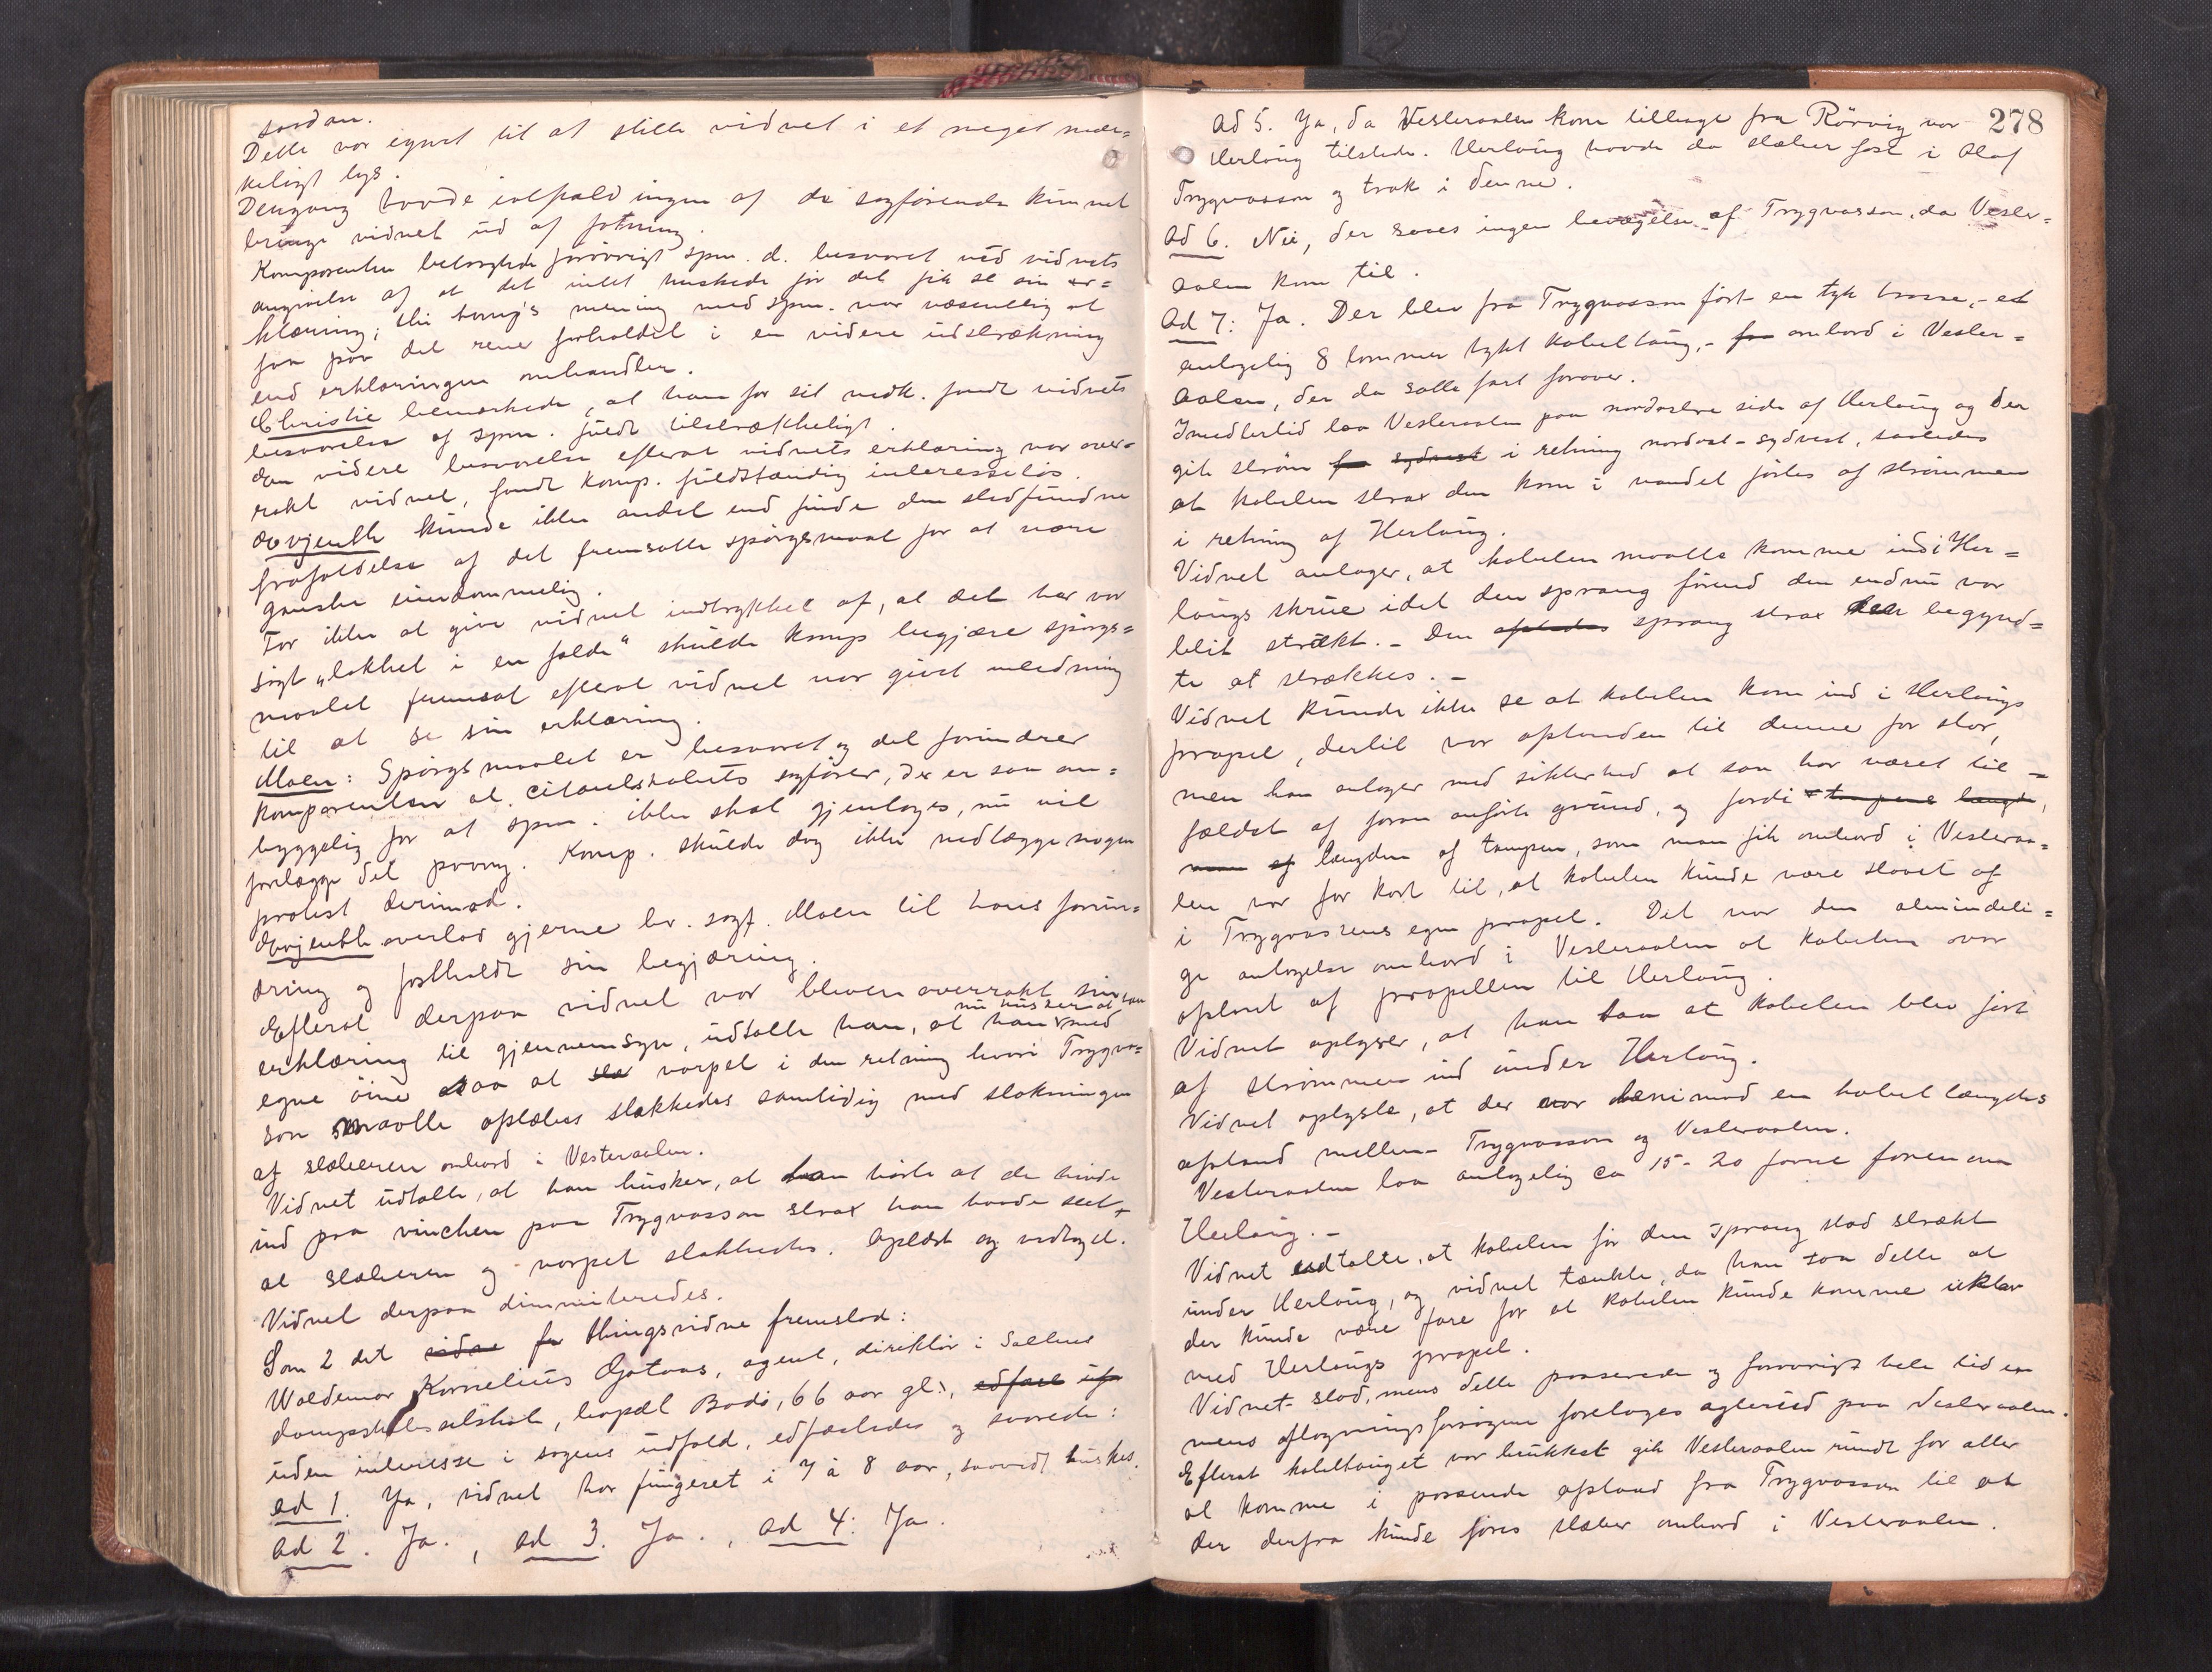 saadan.
Dette var egnet til at stille vidnet i et meget mær=
keligt lys.
Dengang havde ialfald ingen af de sagførende kunnet
bringe vidnet ud af fatning.
Komparenten betragtede forøvrigt spm. d. besvaret ved vidnets
angivelse af at det intet huskede før det fik se sin er=
klæring; mening med spm. var væsentlig at
faa paa det rene forholdet i en videre udstrækning
end erklæringen omhandler.
Christie bemærkede, at han for sit vedk. fandt vidnets
besvarelse af spm. fuldt tilstrækkeligt.
Den videre besvarelse efterat vidnets erklæring var over=
rakt vidnet, fandt komp. fuldstændig interesseløs.
Evjenth kunde ikke andet end finde den stedfundne
frafaldelse af det fremsatte spørgsmaal for at være
ganske eiendommelig.
For ikke at give vidnet indtrykket af, at det har vær
søgt „lokket i en fælde" skulde komp begjære spørgs=
maalet fremsat efterat vidnet var givet anledning
til at se sin erklæring.
Moen: Spørgsmaalet er besvaret og det forundrer
komparenten at citantskabets sagfører, der er saa om=
hyggelig for at spm. ikke skal gjentages, nu vil
forelægge det paany. Komp. skulde dog ikke nedlægge nogen
protest derimod.
Evjenth overlod gjerne hr. sagf. Moen til hans forun=
dring og fastholdt sin begjæring.
Efterat derpaa vidnet var bleven overrakt sin
erklæring til gjennemsyn, udtalte han, at han nu husker at han med
egne øine saa at varpet i den retning hvori Trygva=
son maatte opløbes slakkedes samtidig med slakningen
af slæberen ombord i Vesteraalen.
Vidnet udtalte, at han husker, at han hørte at de hivde
ind paa vinchen paa Trygvasson strax han havde seet
at slæberen og varpet slakkedes. Oplæst og vedtaget.
Vidnet derpaa dimmiteredes.
Som 2 det vidne fr thingsvidne fremstod:
Waldemar Kornelius Gjøtaas, agent, direktør i Saltens
dampskibsselskab, bopæl Bodø, 66 aar gl.,
uden interesse i sagens udfald, edfæstedes og svarede:
ad 1. Ja, vidnet har fungeret i 7 à 8 aar, saavidt huskes.
ad 2. Ja., ad 3. Ja., ad 4: Ja.
278
Ad 5. Ja, da Vesteraalen kom tilbage fra Rørvig var
Herlaug tilstede. Herlaug havde da slæber fast i Olaf
Trygvasson og trak i denne.
Ad 6. Nei, der saaes ingen bevægelse af Trygvasson, da Vester=
aalen kom til.
Ad 7: Ja. Der blev fra Trygvasson ført en tyk trosse, - et
antagelig 8 tommer tykt kabeltaug, - fra ombord i Vester=
aalen, der da satte fart forover.
Imedlertid laa Vesteraalen paa nordøstre side af Herlaug og der
gik strøm fra sydvest i retning nordost-sydvest, saaledes
at kabelen strax den kom i vandet førtes af strømmen
i retning af Herlaug.
Vidnet antager, at kabelen maatte komme ind i Her=
laugs skrue idet den sprang førend den endnu var
blit strækt. - Den sprang strax den begynd=
te at strækkes. -
Vidnet kunde ikke se at kabelen kom ind i Herlaugs
propel, dertil var afstanden til denne for stor,
men han antager med sikkerhed at saa har været til=
fældet af foran anførte grund, og fordi tampens længde,
længden af tampen, som man fik ombord i Vesteraa=
len var for kort til, at kabelen kunde være skaaret af
i Trygvassens egen propel. Det var den almindeli=
ge antagelse ombord i Vesteraalen at kabelen var
opskaaret af propellen til Herlaug.
Vidnet oplyser, at han saa at kabelen blev ført
af strømmen ind under Herlaug.
Vidnet oplyste, at der var henimod en kabel længdes
afstand mellem Trygvasson og Vesteraalen.
Vesteraalen laa antagelig ca 15-20 favne forenom
Herlaug. -
Vidnet udtalte, at kabelen før den sprang stod strækt
under Herlaug, og vidnet tænkte, da han saa dette at
der kunde være fare for at kabelen kunde komme uklar
ved Herlaugs propel.
Vidnet stod, mens dette passerede og forøvrigt hele tiden
mens aftagningsforsøgene foretages agterud paa Vesteraalen.
Efterat kabeltauget var brukket gik Vesteraalen rundt for atter
at komme i passende afstand fra Trygvasson til at
der derfra kunde føres slæber ombord i Vesteraalen.